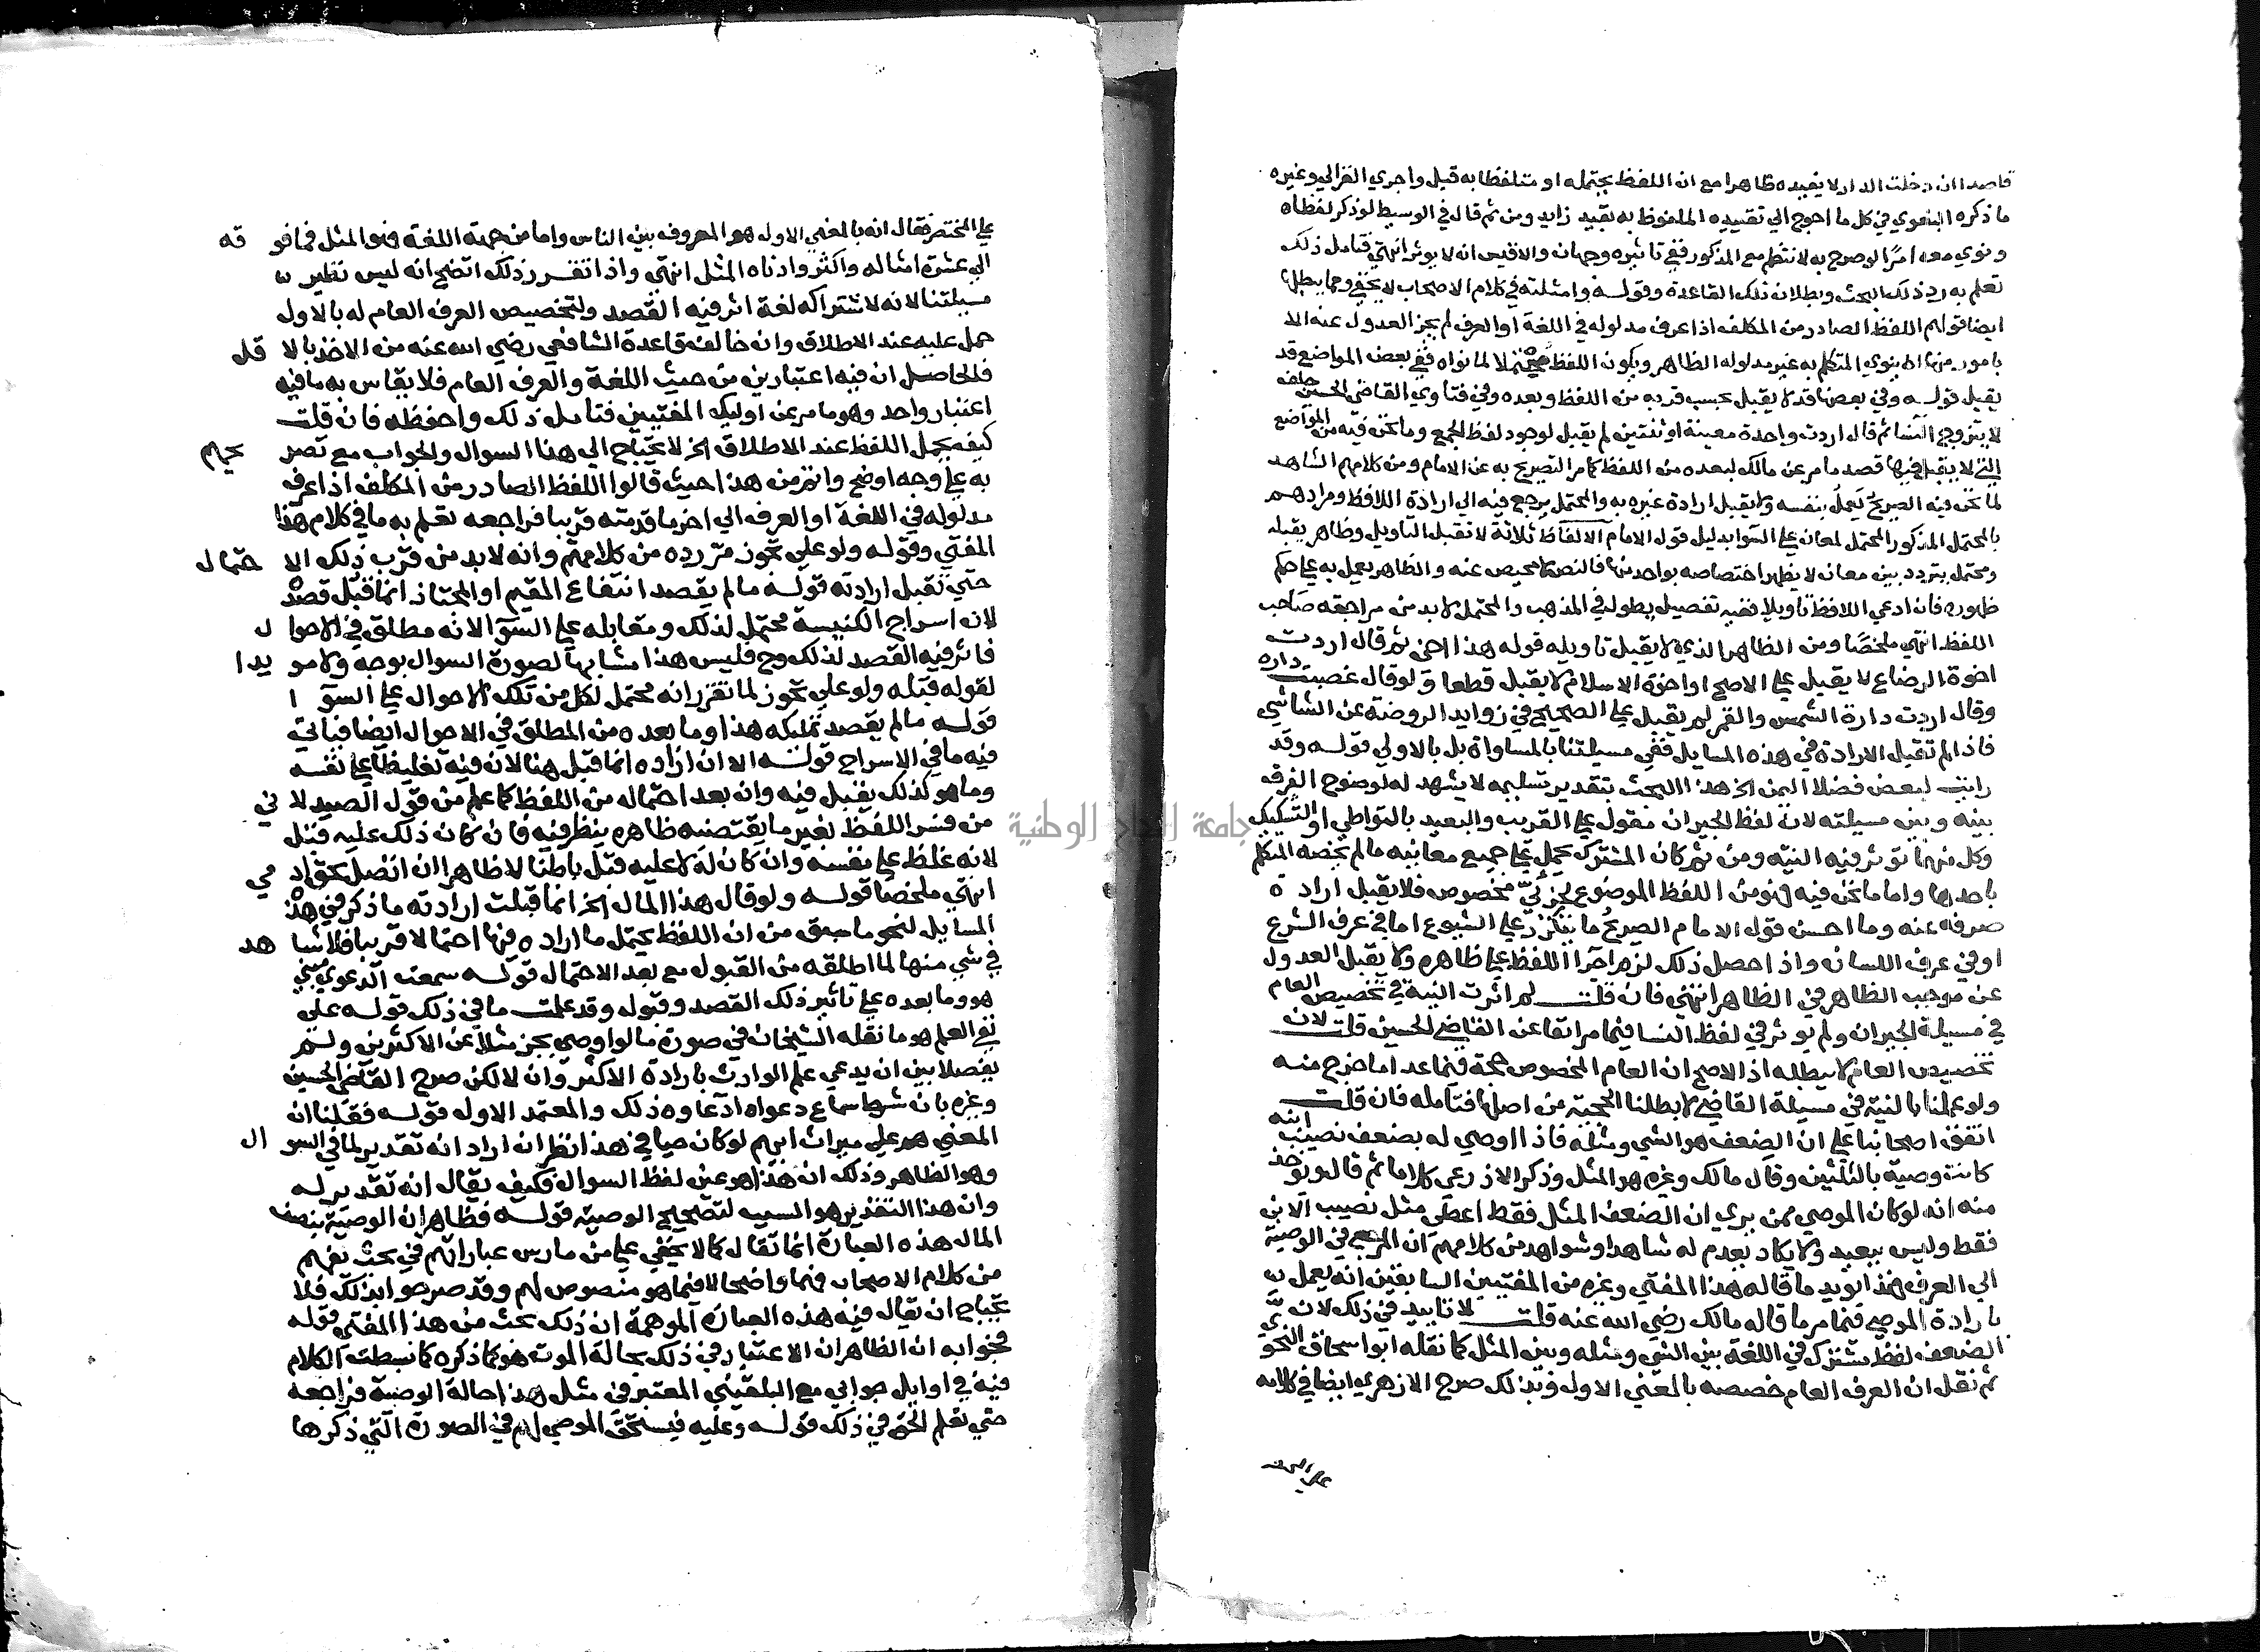 قاصدا ان دخلت الدار لا يفيده ظاهرا مع ان اللفظ يحتمله او متلفظا به قيل واجري الغزالي وغيره
ما ذكره البغوي في كل ما احوج الي تقييده الملفوظ به بقييد زايد ومن ثم قال في الوسيط لو ذكر لفظاه
ونوي معه امرًا لو صرح به لانتظم مع المذكور ففي تاثيره وجهان والاقيس انه لا يوثر انتهي فتامل ذلك
تعلم به رد ذلك البحث وبطلان تلك القاعدة وقوله وامثلته في كلام الاصحاب لا تخفي ومما يبطلها
ايضا قولهم اللفظ الصادر من المكلف اذا عرف مدلوله في اللغة او العرف لم يجز العدول عنه الا
بامور منها ان ينوي المتكلم به غير مدلوله الظاهر ويكون اللفظ محتملا لما نواه ففي بعض المواضع قد
يقبل قوله وفي بعضها قد لا يقبل بحسب قربه من اللفظ وبعده وفي فتاوي القاضي الحسين حلف
لا يتزوج النسا ثم قال اردت واحدة معينة او ثنتين لم يقبل لوجود لفظ الجمع وما نحن فيه من المواضع
التي لا يقبل فيها قصد ما مر عن مالك لبعده من اللفظ كما مر التصريح به عن الامام ومن كلامهم الشاهد
لما نحن فيه الصريح يَعمل بنفسه ولا يقبل ارادة غيره به والمحتمل يرجع فيه الي ارادة اللافظ ومرادهم
بالمحتمل المذكور المحتمل لمعان علي السوا بدليل قول الامام الالفاظ ثلاثة لا تقبل التاويل وظاهر يقبله
ومحتمل يتردد بين معان لا يظهر اختصاصه بواحد منها فالنص لا محيص عنه والظاهر يعمل به علي حكم
ظهوره فان ادعي اللافظ تاويلا ففيه تفصيل يطول في المذهب والمحتمل لا بد من مراجعة صاحب
اللفظ انتهي ملخصًا ومن الظاهر الذي لا يقبل تاويله قوله هذا اخي ثم قال اردت
اخوة الرضاع لا يقبل علي الاصح او اخوة الاسلام لا يقبل قطعا ولو قال غصبت داره
وقال اردت دارة الشمس والقمر لم يقبل علي الصحيح في زوايد الروضة عن الشاشي
فاذا لم تقبل الارادة في هذه المسايل ففي مسيلتنا بالمساواة بل بالاولي قوله وقد
رايت لبعض فضلا اليمن الخ هذا البحث بتقدير تسليمه لا يشهد له لوضوح الفرق
بينه وبين مسيلته لان لفظ الجيران مقول علي القريب والبعيد بالتواطي او التشكيك
وكل منهما توثر فيه النية ومن ثم كان المشترك يحمل علي جميع معانيه ما لم يخصه المتكلم
باحدها واما ما نحن فيه فهو من اللفظ الموضوع لجزئيّ مخصوص فلا يقبل ارادة
صرفه عنه وما احسن قول الامام الصريح ما يتكرر علي الشيوع اما في عرف الشرع
او في عرف اللسان واذا حصل ذلك لزم اجرا اللفظ علي ظاهره ولا يقبل العدول
عن موجب الظاهر في الظاهر انتهي فان قلت لم اثرت النية في تخصيص العام
في مسيلة الجيران ولم يوثر في لفظ النسا فيما مر انفا عن القاضي الحسين قلت لان
تخصيص العام لا يبطله اذ الاصح ان العام المخصوص حجة فيما عدا ما خرج منه
ولو عملنا بالنية في مسيلة القاضي لابطلنا الحجية من اصلها فتامله فان قلت
اتفق اصحابنا علي ان الضعف هو الشي ومثله فاذا اوصي له بضعف نصيب ابنه
كانت وصية بالثلثين وقال مالك وغيره هو المثل وذكر الاذرعي كلاما ثم قال ويوخذ
منه انه لو كان الموصي ممن يري ان الضعف المثل فقط اعطي مثل نصيب الابن
فقط وليس ببعيد ولا يكاد يعدم له شاهدا وشواهد من كلامهم ان المرجع في الوصية
الي العرف فهذا يويد ما قاله هذا المفتي وغيره من المفتيين السابقين انه يعمل
بارادة الموصي فيما مر ما قاله مالك رضي الله عنه قلت لا تاييد في ذلك لان
الضعف لفظ مشترك في اللغة بين الشي ومثله وبين المثل كما نقله ابو اسحاق النحوي
ثم نقل ان العرف العام خصصه بالمعني الاول وبذلك صرح الازهري ايضا في كلامه
علي المختصر
علي المختصر فقال انه بالمعني الاول هو المعروف بين الناس واما من جهة اللغة فهو المثل فما فوقه
الي عشرة امثاله واكثر وادناه المثل انتهي واذا تقرر ذلك اتضح انه ليس نظير
مسيلتنا لانه لاشتراكه لغة اثر فيه القصد ولتخصيص العرف العام له بالاول
حمل عليه عند الاطلاق وان خالف قاعدة الشافعي رضي الله عنه من الاخذ بالاقل
فالحاصل ان فيه اعتبارين من حيث اللغة والعرف العام فلا يقاس به ما فيه
اعتبار واحد وهو ما مر عن اوليك المفتيين فتامل ذلك واحفظه فان قلت
كيف يحمل اللفظ عند الاطلاق الخ لا يحتاج الي هذا السوال والجواب مع تصريحهم
به علي وجه اوضح واتم من هذا حيث قالوا اللفظ الصادر من المكلف اذا عرف
مدلوله في اللغة او العرف الي اخر ما قدمته قريبا فراجعه تعلم به ما في كلام هذا
المفتي وقوله ولو علي تجوز مرّ رده من كلامهم وانه لا بد من قرب ذلك الاحتمال
حتي تقبل ارادته قوله ما لم يقصد انتفاع المقيم او المجتاز انما قبل قصد
لان اسراج الكنيسة محتمل لذلك ومقابله علي السوآ لانه مطلق في الاحوال
فاثر فيه القصد لذلك وح فليس هذا مشابها لصورة السوال بوجه ولا مويدا
لقوله قبله ولو علي تجوز لما تقرر انه محتمل لكل من تلك الاحوال علي السوآ
قوله ما لم يقصد تمليكه هذا وما بعده من المطلق في الاحوال ايضا فياتي
فيه ما في الاسراج قوله الا ان اراده انما قبل هنا لان فيه تغليظا علي نفسه
وما هو كذلك يقبل فيه وان بعد احتماله من اللفظ كما علم من قول الصيدلاني
من فسر اللفظ بغير ما يقتضيه ظاهره ينظر فيه فان كان ذلك عليه قبل
لانه غلظ علي نفسه وان كان لَه لا عليه قبل باطنا لا ظاهرا ان اتصل بحق ادمي
انتهي ملخصا قوله ولو قال هذا المال الخ انما قبلت ارادته ما ذكر في هذه
المسايل لنحو ما سبق من ان اللفظ يحتمل ما اراده فيها احتمالا قريبا فلا شاهد
في شي منها لما اطلقه من القبول مع بعد الاحتمال قوله سمعت الدعوي مبني
هو وما بعده علي تاثير ذلك القصد وقبوله وقد علمت ما في ذلك قوله علي
نفي العلم هو ما نقله الشيخان في صورة ما لو اوصي بجز مثلا عن الاكثرين ولم
يفصلا بين ان يدعي علم الوارث بارادة الاكثر وان لا لكن صرح القاضي الحسين
وغيره بان شرط سماع دعواه ادعاوه ذلك والمعتمد الاول قوله فقلنا ان
المعني هو علي ميراث ابيهم لو كان حيا في هذا نظر ان اراد انه تقدير لما في السوال
وهو الظاهر وذلك ان هذا هو عين لفظ السوال فكيف يقال انه تقدير له
وان هذا التقدير هو السبب لتصحيح الوصية قوله فظاهر ان الوصية بنصف
المال هذه العبارة انما تقال كما لا يخفي علي من مارس عباراتهم في بحث يفهم
من كلام الاصحاب فهما واضحا لا فيما هو منصوص لهم وقد صرحوا بذلك فلا
يحتاج ان يقال فيه هذه العبارة الموهمة ان ذلك بحث من هذا المفتي قوله
فجوابه ان الظاهر ان الاعتبار في ذلك بحالة الموت هو كما ذكره كما بسطت الكلام
فيه في اوايل جوابي مع البلقيني المعتبر في مثل هذا حالة الوصية فراجعه
حتي تعلم الحق في ذلك قوله وعليه فيستحق الموصي لهم في الصورة التي ذكرها
جامعة النجاح الوطنية